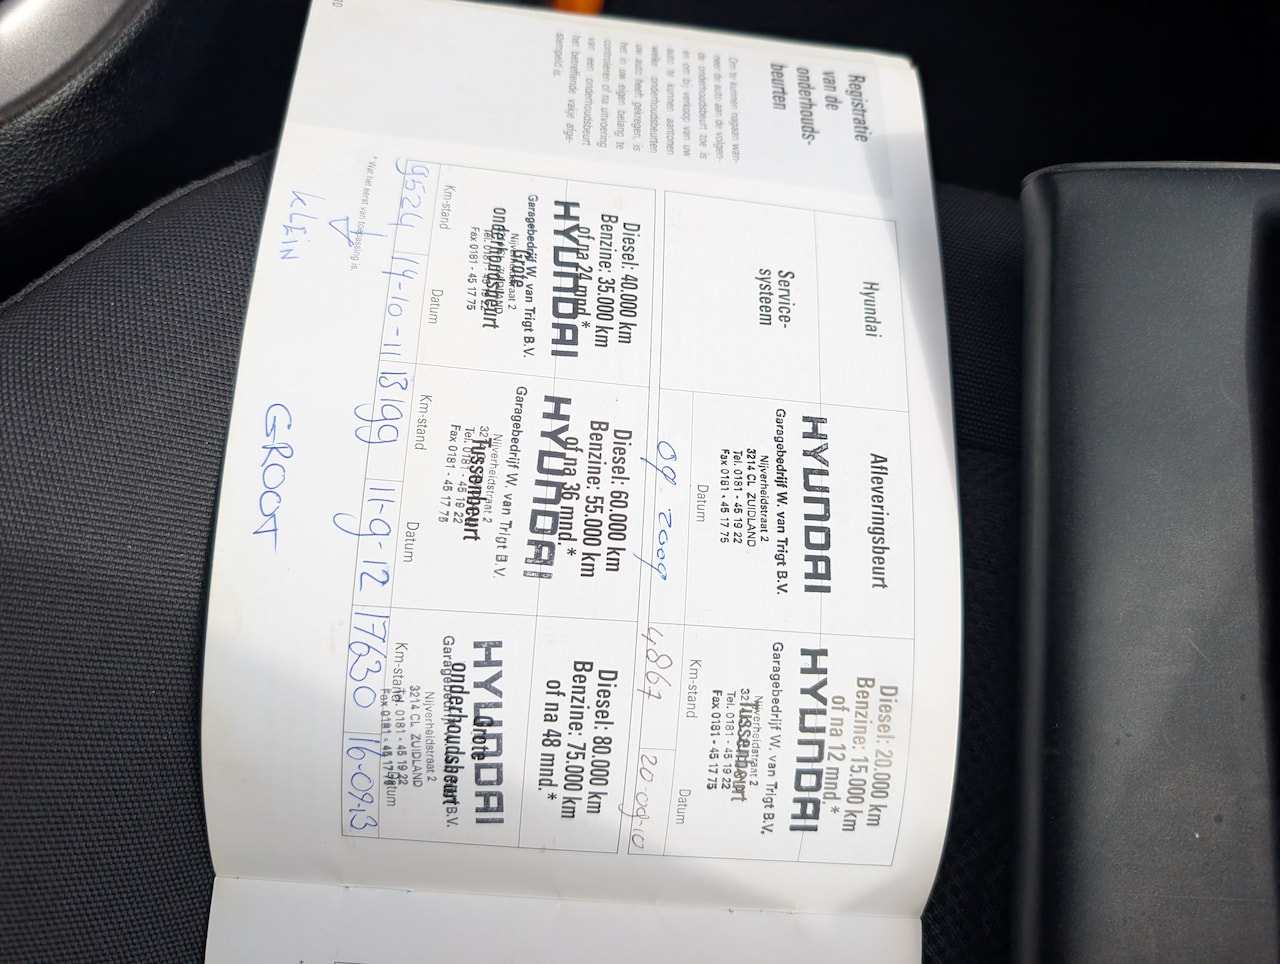 Registratie
van de
onderhouds-
beurten
Om te kunnen nagaan wan-
neer de auto aan de volgen-
de onderhoudsbeurt toe is
en om bij verkoop van uw
auto te kunnen aantonen
welke onderhoudsbeurten
uw auto heeft gekregen, is
het in uw eigen belang te
controleren of na uitvoering
van een onderhoudsbeurt
het betreffende vakje afge-
stempeld is.
Hyundai
Service-
systeem
Afleveringsbeurt
HYUNDAI
Garagebedrijf W. van Trigt B.V.
Nijverheidstraat 2
3214 CL ZUIDLAND
Tel. 0181 - 45 19 22
Fax 0181 - 45 17 75
Datum
09-2009
Diesel: 20.000 km
Benzine: 15.000 km
of na 12 mnd. *
HYUNDAI
Garagebedrijf W. van Trigt B.V.
Nijverheidstraat 2
Tussenbeurt
Tel. 0181 - 45 19 22
Fax 0181 - 45 17 75
Km-stand
Datum
4867
20-09-10
Diesel: 40.000 km
Benzine: 35.000 km
of na 24 mnd *
HYUNDAI
Garagebedrijf W. van Trigt B.V.
Grote
onderhoudsbeurt
Fax 0181 - 45 17 75
Km-stand
Datum
9524
14-10-11
Diesel: 60.000 km
Benzine: 55.000 km
of na 36 mnd. *
HYUNDAI
Garagebedrijf W. van Trigt B.V.
Nijverheidstraat 2
Tussenbeurt
Tel. 0181 - 45 19 22
Fax 0181 - 45 17 75
Km-stand
Datum
13199
11-9-12
Diesel: 80.000 km
Benzine: 75.000 km
of na 48 mnd. *
HYUNDAI
Grote
onderhoudsbeurt
Garagebedrijf B.V.
Nijverheidstraat 2
3214 CL ZUIDLAND
Tel. 0181 - 45 19 22
Fax 0181 - 45 17 75
Km-stand
Datum
17630
16-09-13
* Wat het eerst van toepassing is.
KLEIN
GROOT